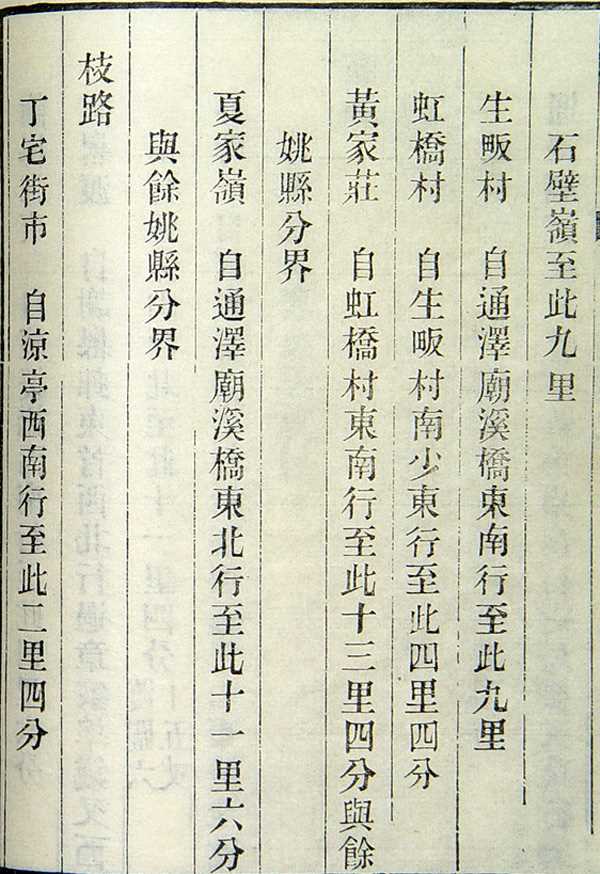 石壁嶺至此九里
生畈村　自通澤廟溪橋東南行至此九里
虹橋村　自生畈村南少東行至此四里四分
黃家莊　自虹橋村東南行至此十三里四分與餘
姚縣分界
夏家嶺　自通澤廟溪橋東北行至此十一里六分
與餘姚縣分界
枝路
丁宅街市　自涼亭西南行至此二里四分